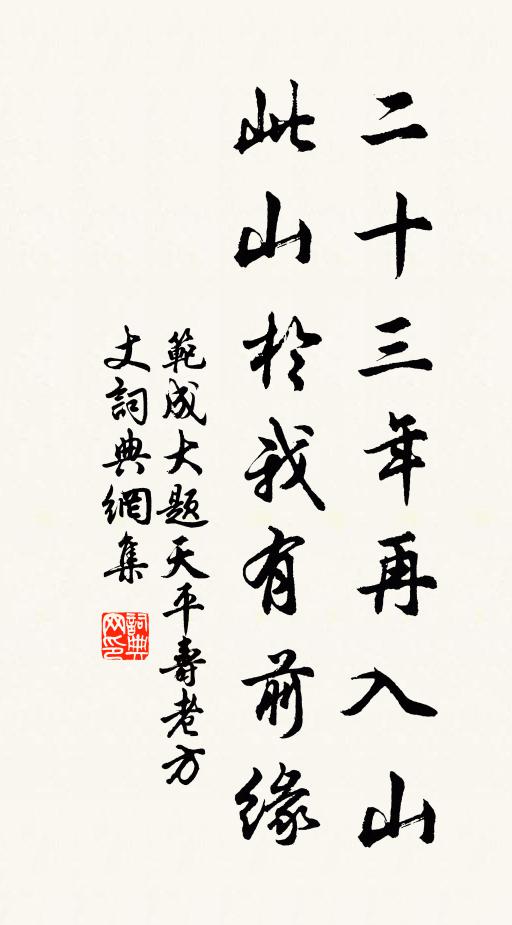 二十三年再入山
此山於我有前緣
範成大題天平壽老方
丈詞典網集
詞典网印